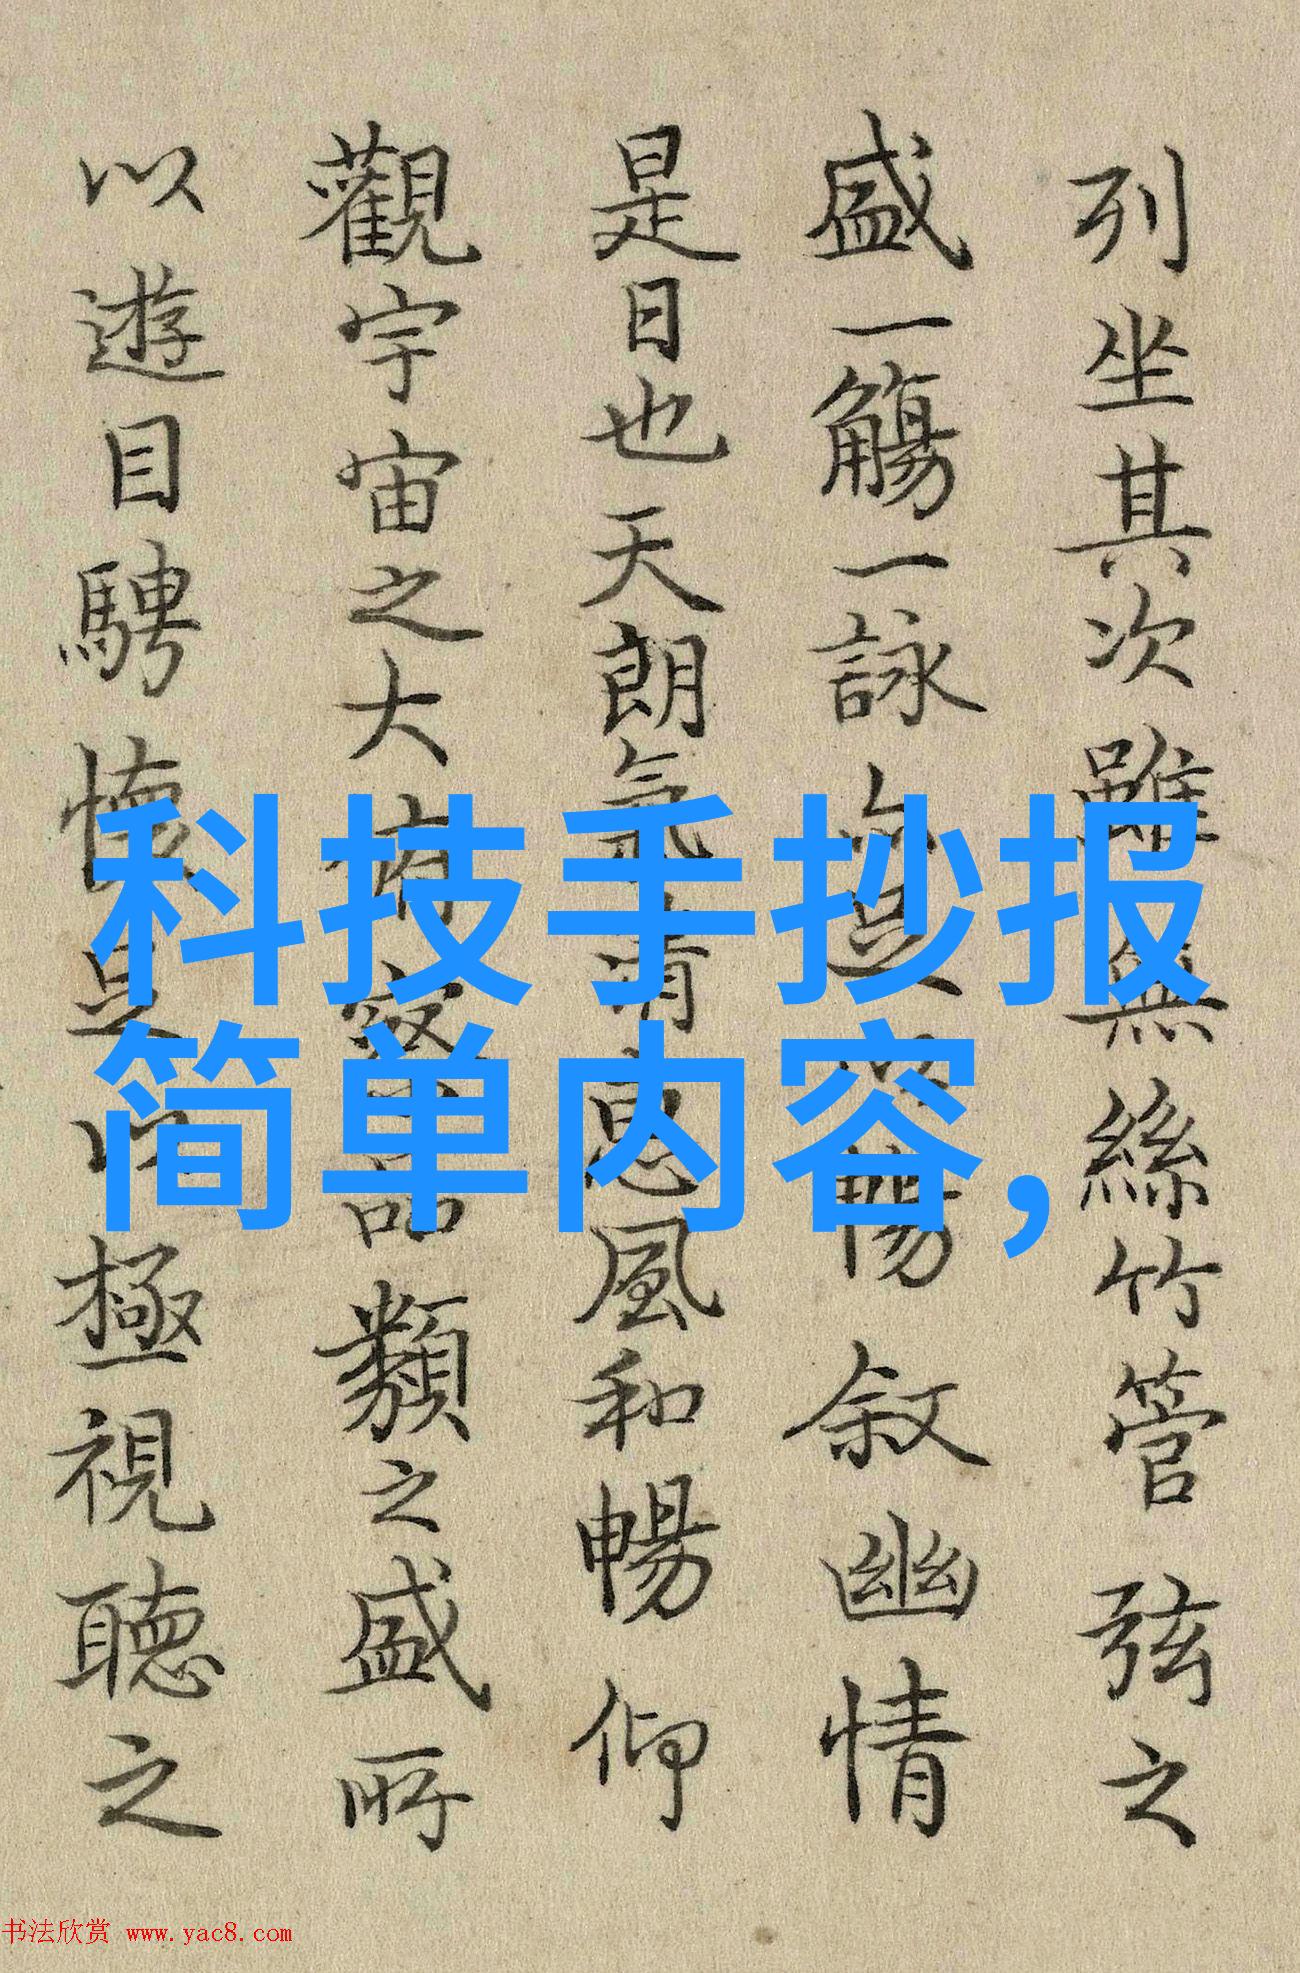 列坐其次雖無絲竹管弦之
盛一觴一詠亦足暢叙幽情
是日也天朗氣清惠風和暢仰
觀宇宙之大俯察品類之盛所
以遊目騁懷足以極視聽之
科技手抄报
简单内容,
书法欣赏 www.yac8.com